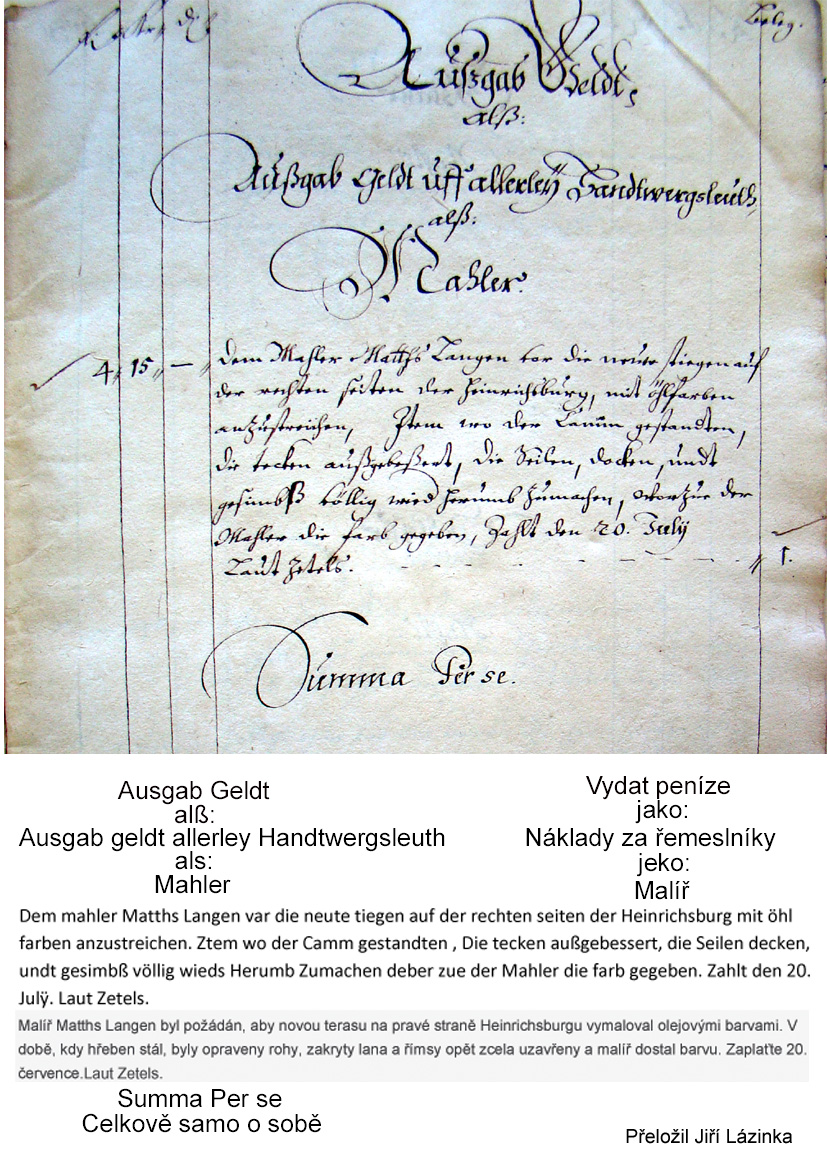 Beleg.
Außgab Geldt,
alß:
Außgab Geldt uff allerley Handtwergsleuth,
alß:
Mahler.
4 15 — dem Mahler Matths Langen vor die neue stiegen auf
der rechten seiten der Heinrichsburg, mit öhlfarben
anzustreichen, Item wo der Camin gestandten,
die tecken außgebeßert, die Seilen, docken, undt
gesimbß völlig wied herumb zumachen, worzue der
Mahler die farb gegeben, Zahlt den 20. Julÿ
Laut Zetels. 1.
Summa Per se.
Ausgab Geldt
alß:
Ausgab geldt allerley Handtwergsleuth
als:
Mahler
Vydat peníze
jako:
Náklady za řemeslníky
jeko:
Malíř
Dem mahler Matths Langen var die neute tiegen auf der rechten seiten der Heinrichsburg mit öhl
farben anzustreichen. Ztem wo der Camm gestandten , Die tecken außgebessert, die Seilen decken,
undt gesimbß völlig wieds Herumb Zumachen deber zue der Mahler die farb gegeben. Zahlt den 20.
Julÿ. Laut Zetels.
Malíř Matths Langen byl požádán, aby novou terasu na pravé straně Heinrichsburgu vymaloval olejovými barvami. V
době, kdy hřeben stál, byly opraveny rohy, zakryty lana a římsy opět zcela uzavřeny a malíř dostal barvu. Zaplaťte 20.
července.Laut Zetels.
Summa Per se
Celkově samo o sobě
Přeložil Jiří Lázinka